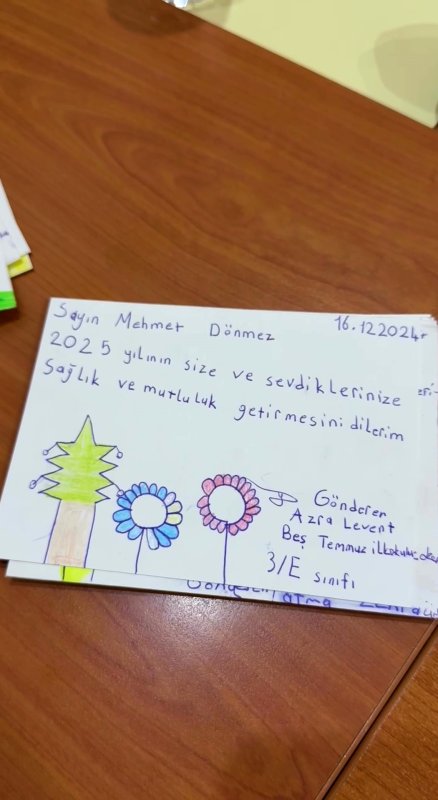 Sayın Mehmet Dönmez 16.12.2024
2025 yılının size ve sevdiklerinize
Sağlık ve mutluluk getirmesini dilerim
Gönderen
Azra Levent
Beş Temmuz ilkokulu
3/E sınıfı